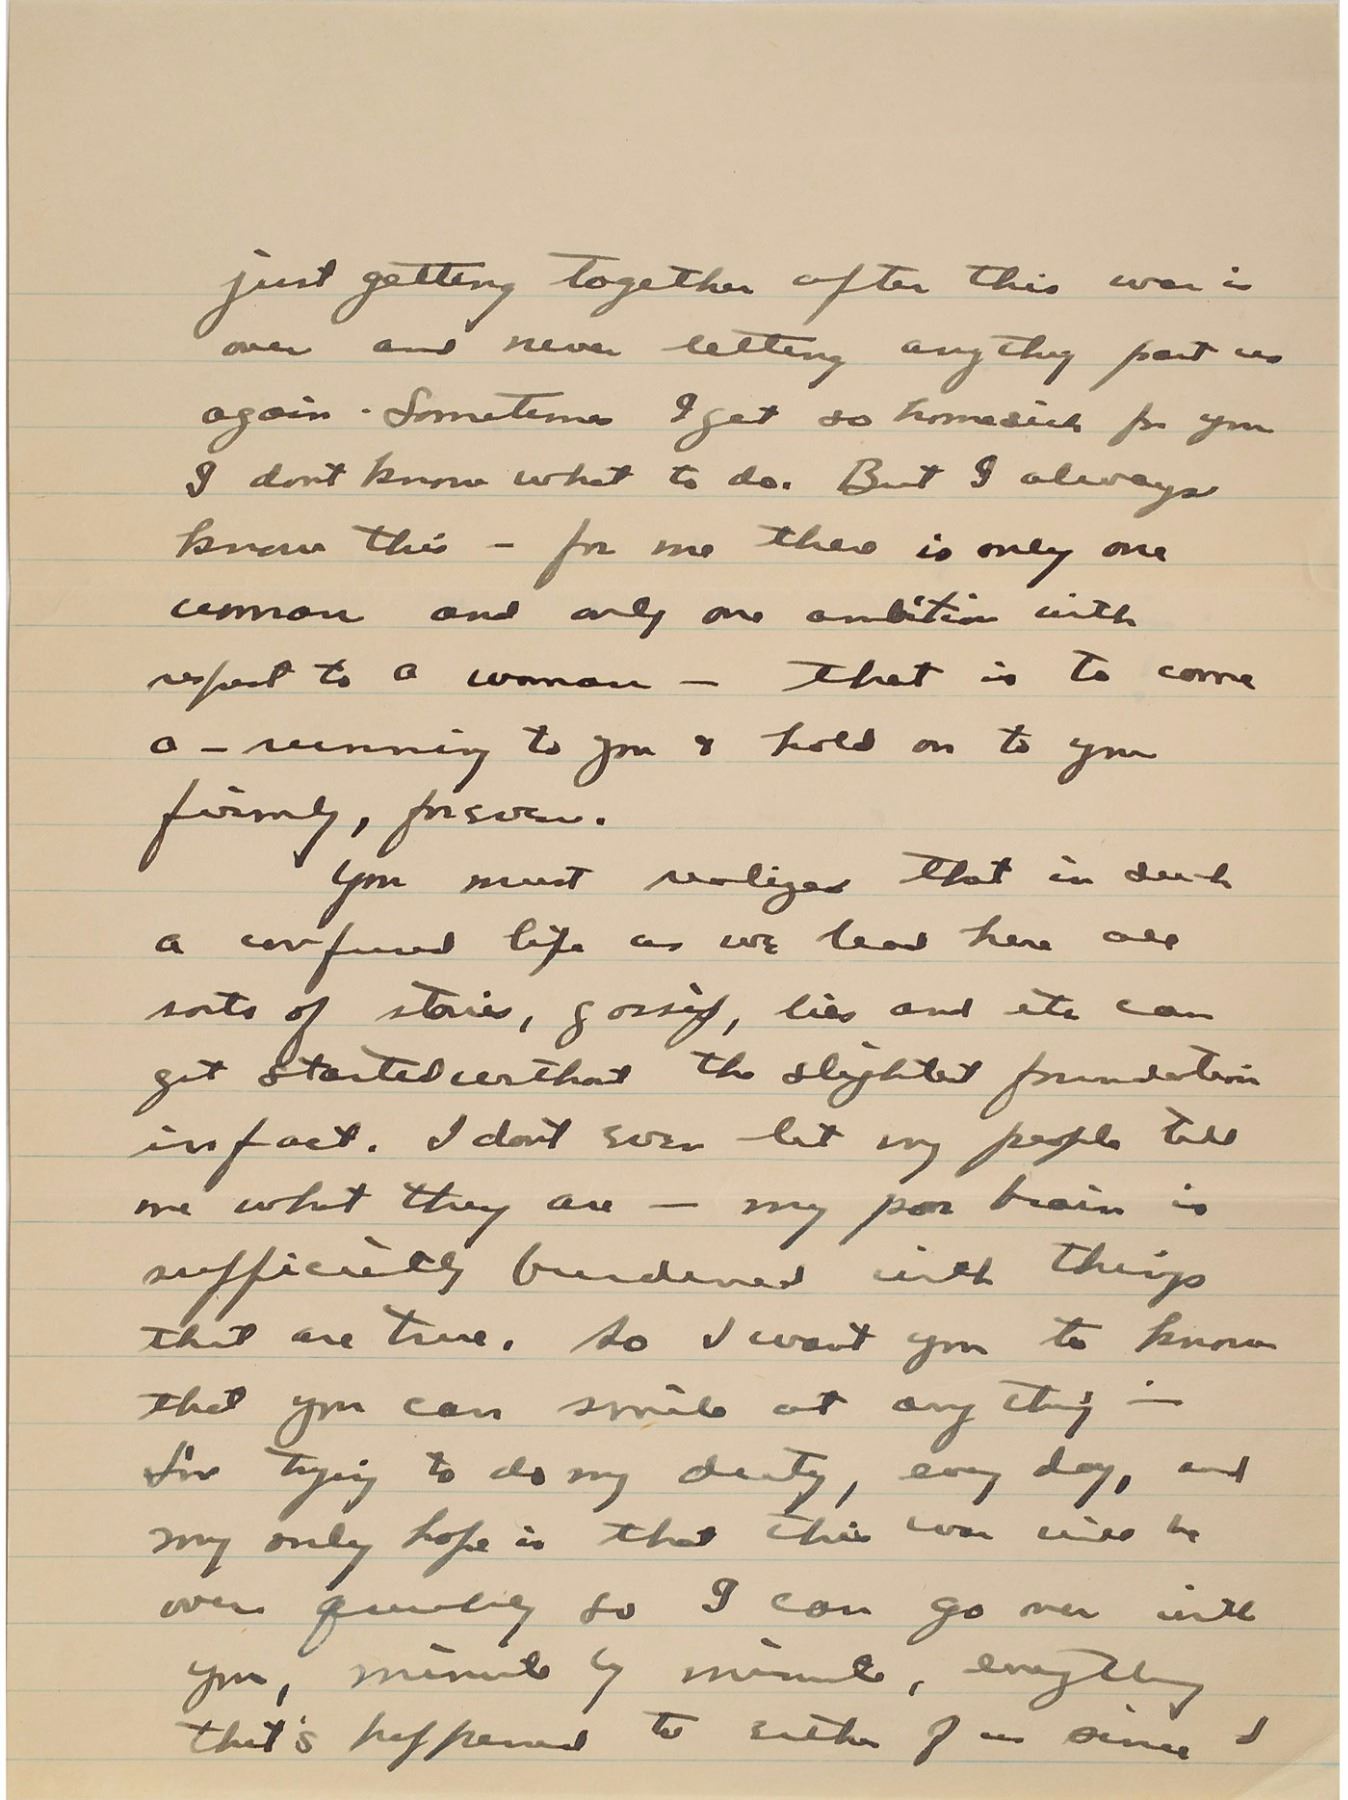 just getting together after this war is
over and never letting anything part us
again. Sometimes I get so homesick for you
I don't know what to do. But I always
know this - for me there is only one
woman and only one ambition with
respect to a woman - that is to come
a-running to you & hold on to you
firmly, forever.
You must realize that in such
a confused life as we lead here all
sorts of stories, gossip, lies and etc can
get started without the slightest foundation
in fact. I don't even let my people tell
me what they are - my poor brain is
sufficiently burdened with things
that are true. So I want you to know
that you can smile at anything -
I'm trying to do my duty, every day, and
my only hope is that this war will be
over quickly so I can go over with
you, minute by minute, everything
that's happened to either of us since I